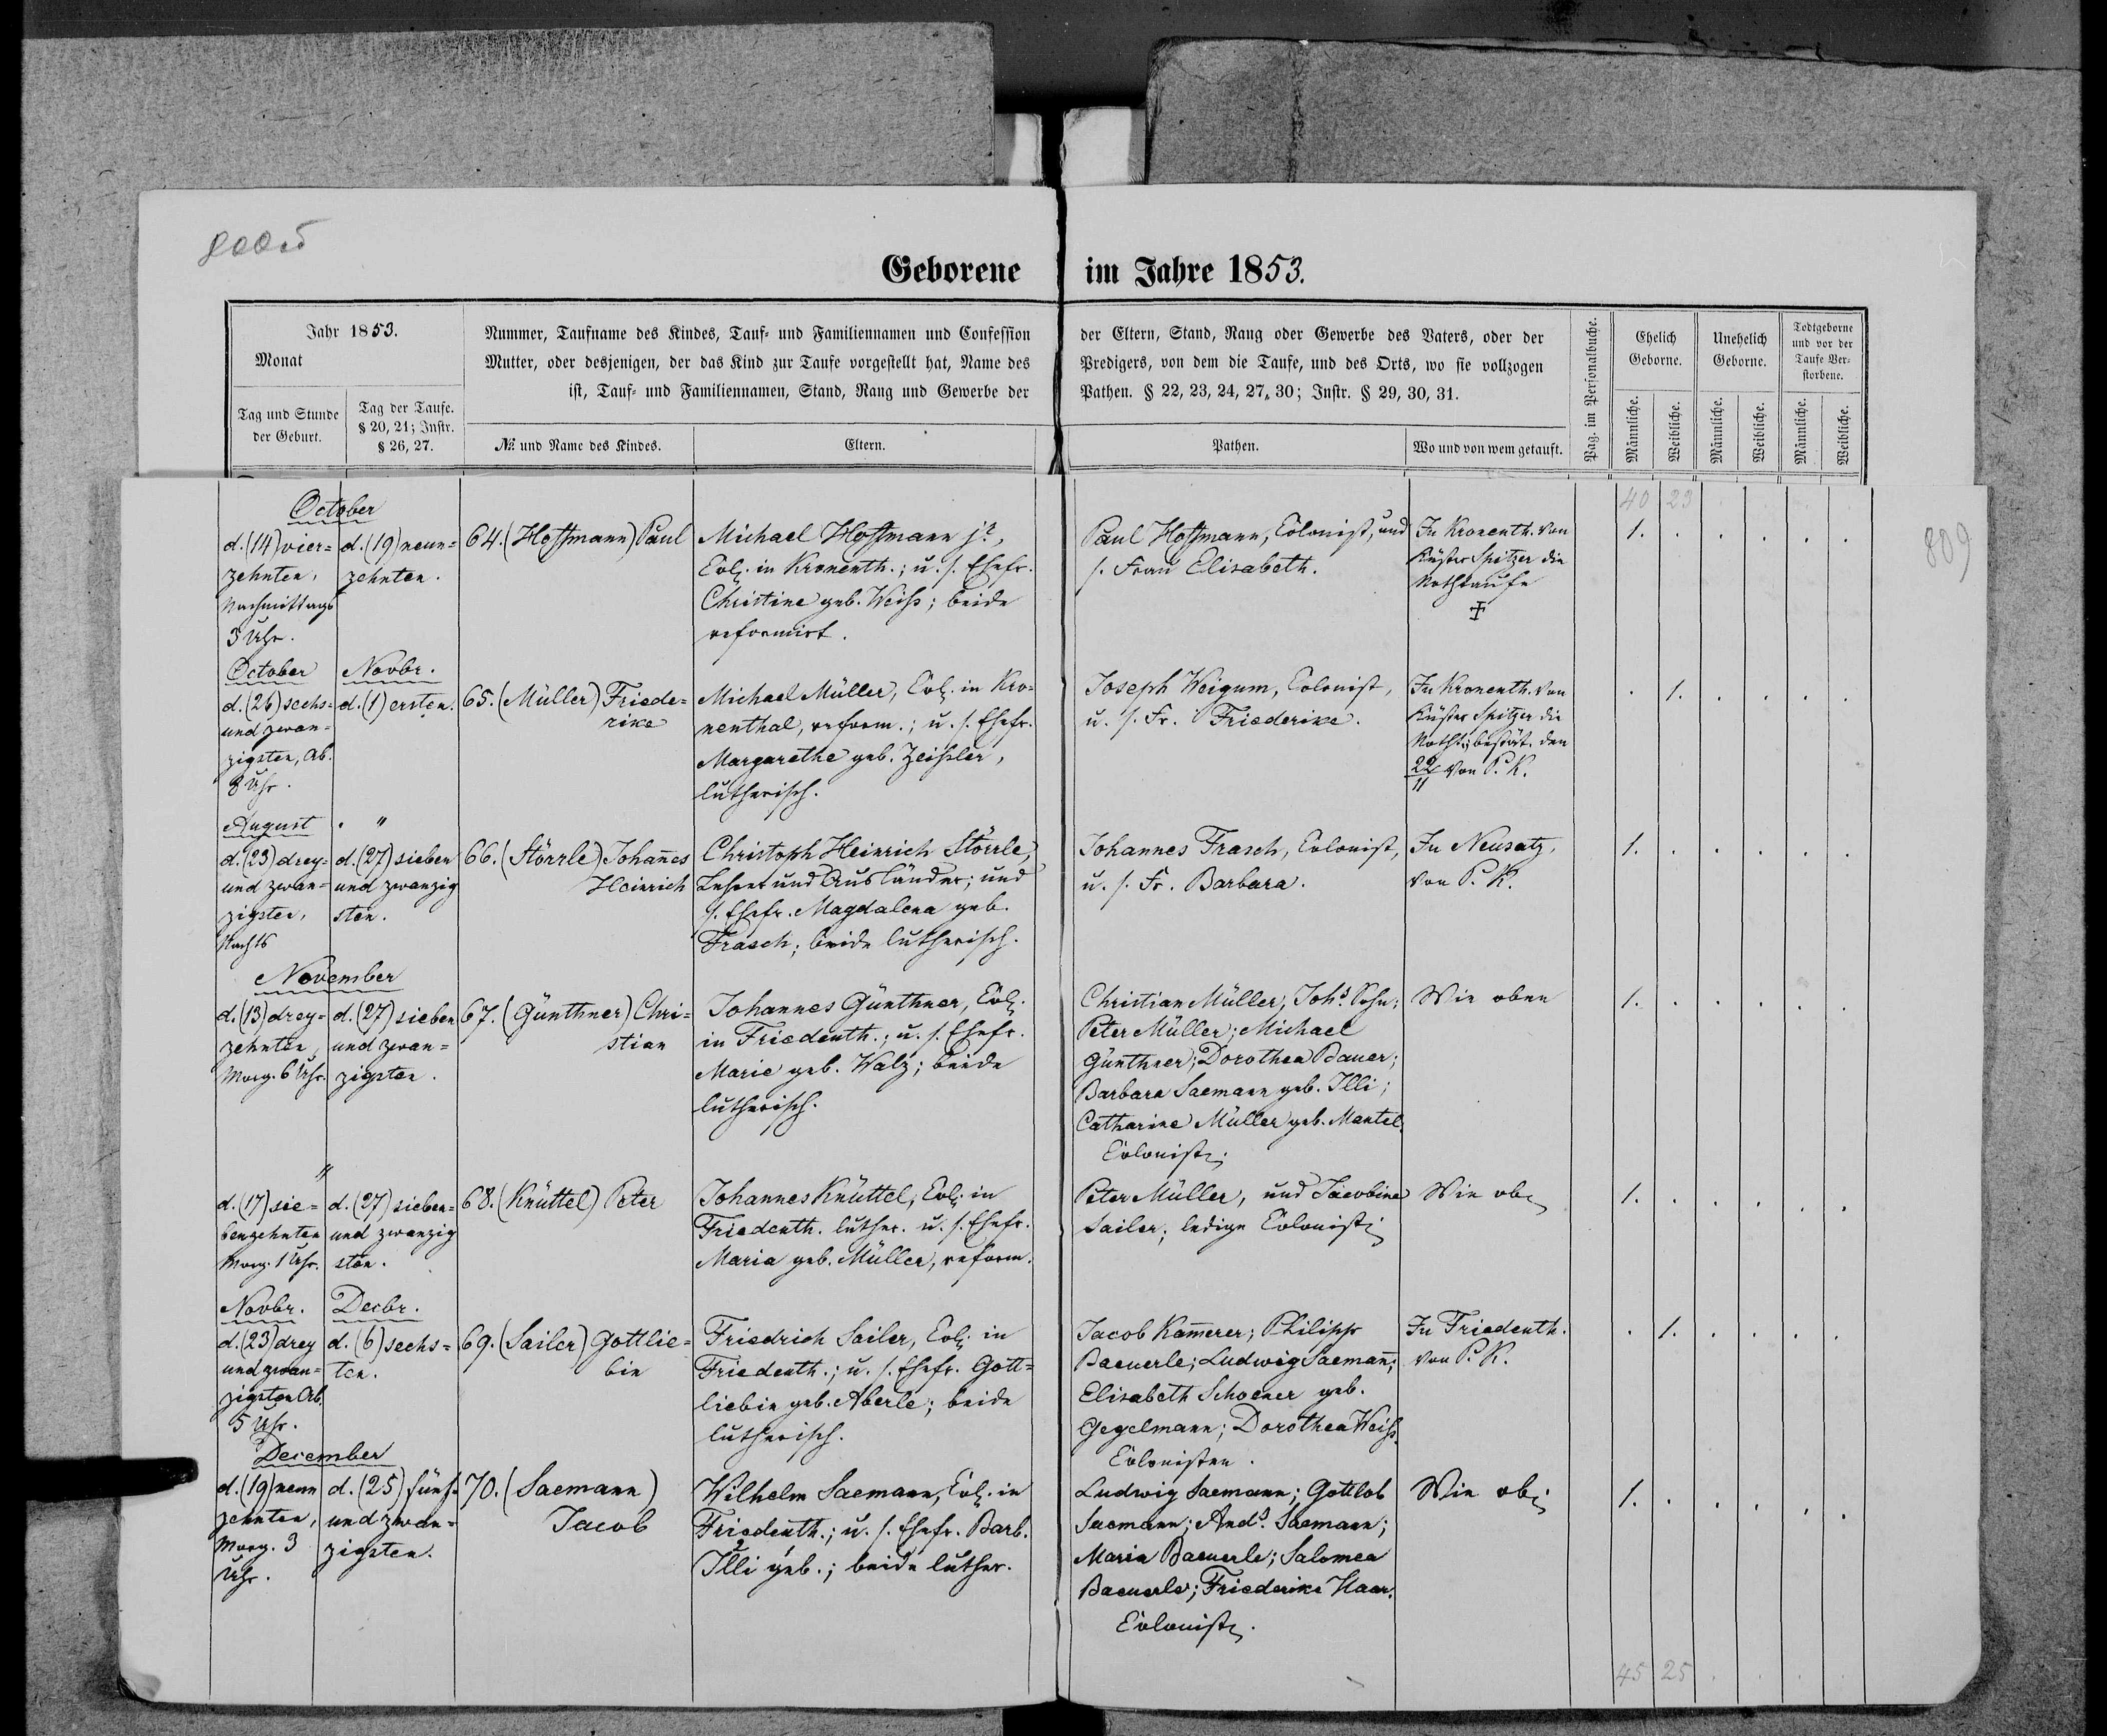 Geborene im Jahre 1853.
Jahr 1853.
Monat
Tag und Stunde
der Geburt.
Tag der Taufe.
§ 20, 21; Instr.
§ 26, 27.
Nummer, Taufname des Kindes, Tauf- und Familiennamen und Confession
Mutter, oder desjenigen, der das Kind zur Taufe vorgestellt hat, Name des
ist, Tauf- und Familiennamen, Stand, Rang und Gewerbe der
№ und Name des Kindes.
Eltern.
der Eltern, Stand, Rang oder Gewerbe des Vaters, oder der
Predigers, von dem die Taufe, und des Orts, wo sie vollzogen
Pathen. § 22, 23, 24, 27, 30; Instr. § 29, 30, 31.
Pathen.
Wo und von wem getauft.
Pag. im Personalbuche.
Ehelich
Geborne.
Unehelich
Geborne.
Todtgeborne
und vor der
Taufe Ver-
storbene.
Männliche.
Weibliche.
Männliche.
Weibliche.
Männliche.
Weibliche.
40 23
809
October
d. (14) vier=
zehnten,
Nachmittags
3 Uhr.
d. (19) neun=
zehnten.
64. (Hoffmann) Paul
Michael Hoffmann jr.,
Col. in Kronenth.; u. s. Ehefr.
Christine geb. Weiß; beide
reformirt.
Paul Hoffmann, Colonist, und
s. Frau Elisabeth.
In Kronenth. von
Küster Spitzer die
Nothtaufe
1. . . . . .
October
d. (26) sechs=
und zwan=
zigsten, Ab.
8 Uhr.
Novbr.
d. (1) ersten.
65. (Müller) Friede=
rike
Michael Müller, Col. in Kro=
nenthal, reform.; u. s. Ehefr.
Margarethe geb. Zeißler,
lutherisch.
Joseph Weigum, Colonist,
u. s. Fr. Friederike.
In Kronenth. von
Küster Spitzer die
Notht.; bestät. den
22/11 von P. K.
. 1. . . . .
August
d. (23) drey=
und zwan=
zigsten,
Nachts
"
d. (27) sieben
und zwanzig
sten.
66. (Störrle) Johannes
Heinrich
Christoph Heinrich Störrle,
Lehrer und Ausländer; und
s. Ehefr. Magdalena geb.
Frasch; beide lutherisch.
Johannes Frasch, Colonist,
u. s. Fr. Barbara.
In Neusatz,
von P. K.
1. . . . . .
November
d. (13) drey=
zehnten,
Morg. 6 Uhr.
d. (27) sieben
und zwan=
zigsten.
67. (Günthner) Chri=
stian
Johannes Günthner, Col.
in Friedenth.; u. s. Ehefr.
Marie geb. Walz; beide
lutherisch.
Christian Müller, Johs. Sohn;
Peter Müller; Michael
Günthner; Dorothea Bauer;
Barbara Saemann geb. Illi;
Catharine Müller geb. Mantel.
Colonisten.
Wie oben
1. . . . . .
"
d. (17) sie=
benzehnten
Morg. 1 Uhr.
d. (27) sieben=
und zwanzig
sten.
68. (Knüttel) Peter
Johannes Knüttel, Col. in
Friedenth. luther. u. s. Ehefr.
Maria geb. Müller, reform.
Peter Müller, und Jacobine
Sailer; ledige Colonisten
Wie oben
1. . . . . .
Novbr.
d. (23) drey
und zwan=
zigsten Ab.
5 Uhr.
Decbr.
d. (6) sechs=
ten.
69. (Sailer) Gottlie=
bin
Friedrich Sailer, Col. in
Friedenth.; u. s. Ehefr. Gott=
liebin geb. Aberle; beide
lutherisch.
Jacob Kammerer; Philipp
Baeuerle; Ludwig Saemann;
Elisabeth Schoener geb.
Gegelmann; Dorothea Weiß.
Colonisten.
In Friedenth.
von P. K.
. 1. . . . .
December
d. (19) neun
zehnten,
Morg. 3
Uhr.
d. (25) fünf=
und zwan=
zigsten.
70. (Saemann)
Jacob
Wilhelm Saemann, Col. in
Friedenth.; u. s. Ehefr. Barb.
Illi geb.; beide luther.
Ludwig Saemann; Gottlob
Saemann; Ands. Saemann;
Maria Baeuerle; Salomea
Baeuerle; Friederike Haar.
Colonisten.
Wie oben
1. . . . . .
45 25 . . . .